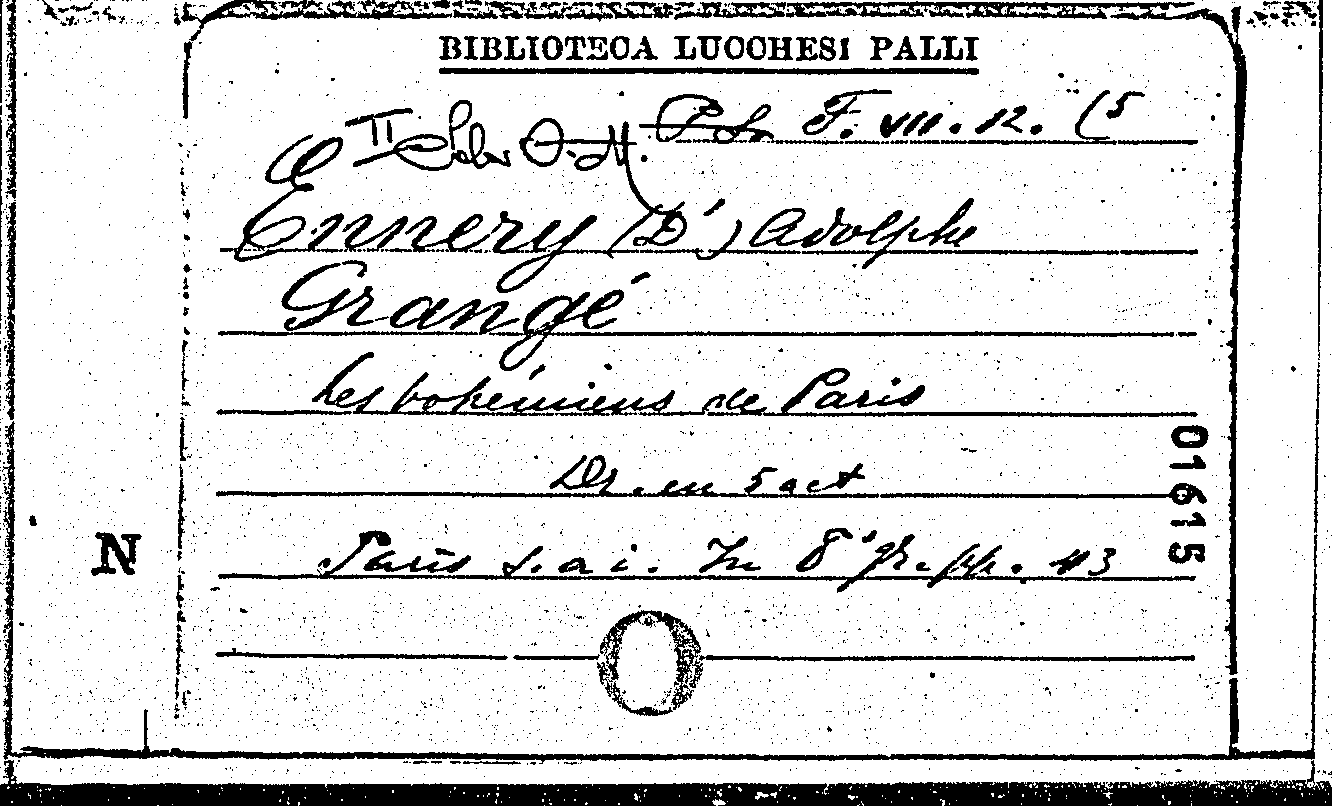 BIBLIOTECA LUCCHESI PALLI
F. VII. 12. (5
Ennery (D') Adolphe
Grangé
Les bohémiens de Paris
Dr. en 5 act
01615
N
Paris s. a i. In 8° gr. pp. 43